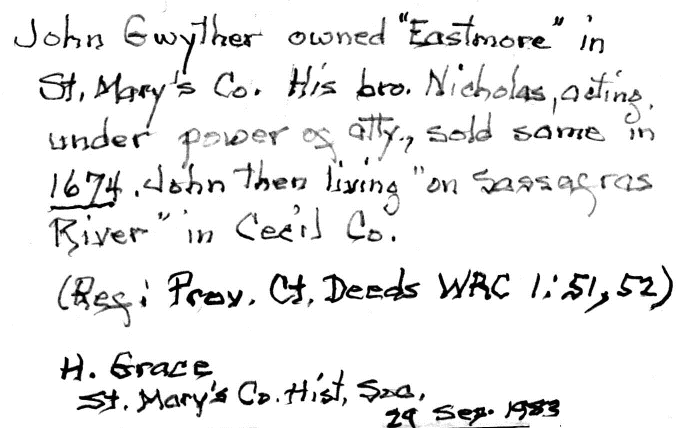 John Gwyther owned "Eastmore" in
St. Mary's Co. His bro. Nicholas, acting
under power of atty., sold same in
1674. John then living "on Sassafras
River" in Cecil Co.
(Ref: Prov. Ct. Deeds WRC 1:51,52)
H. Grace
St. Mary's Co. Hist. Soc.
29 Sep. 1983